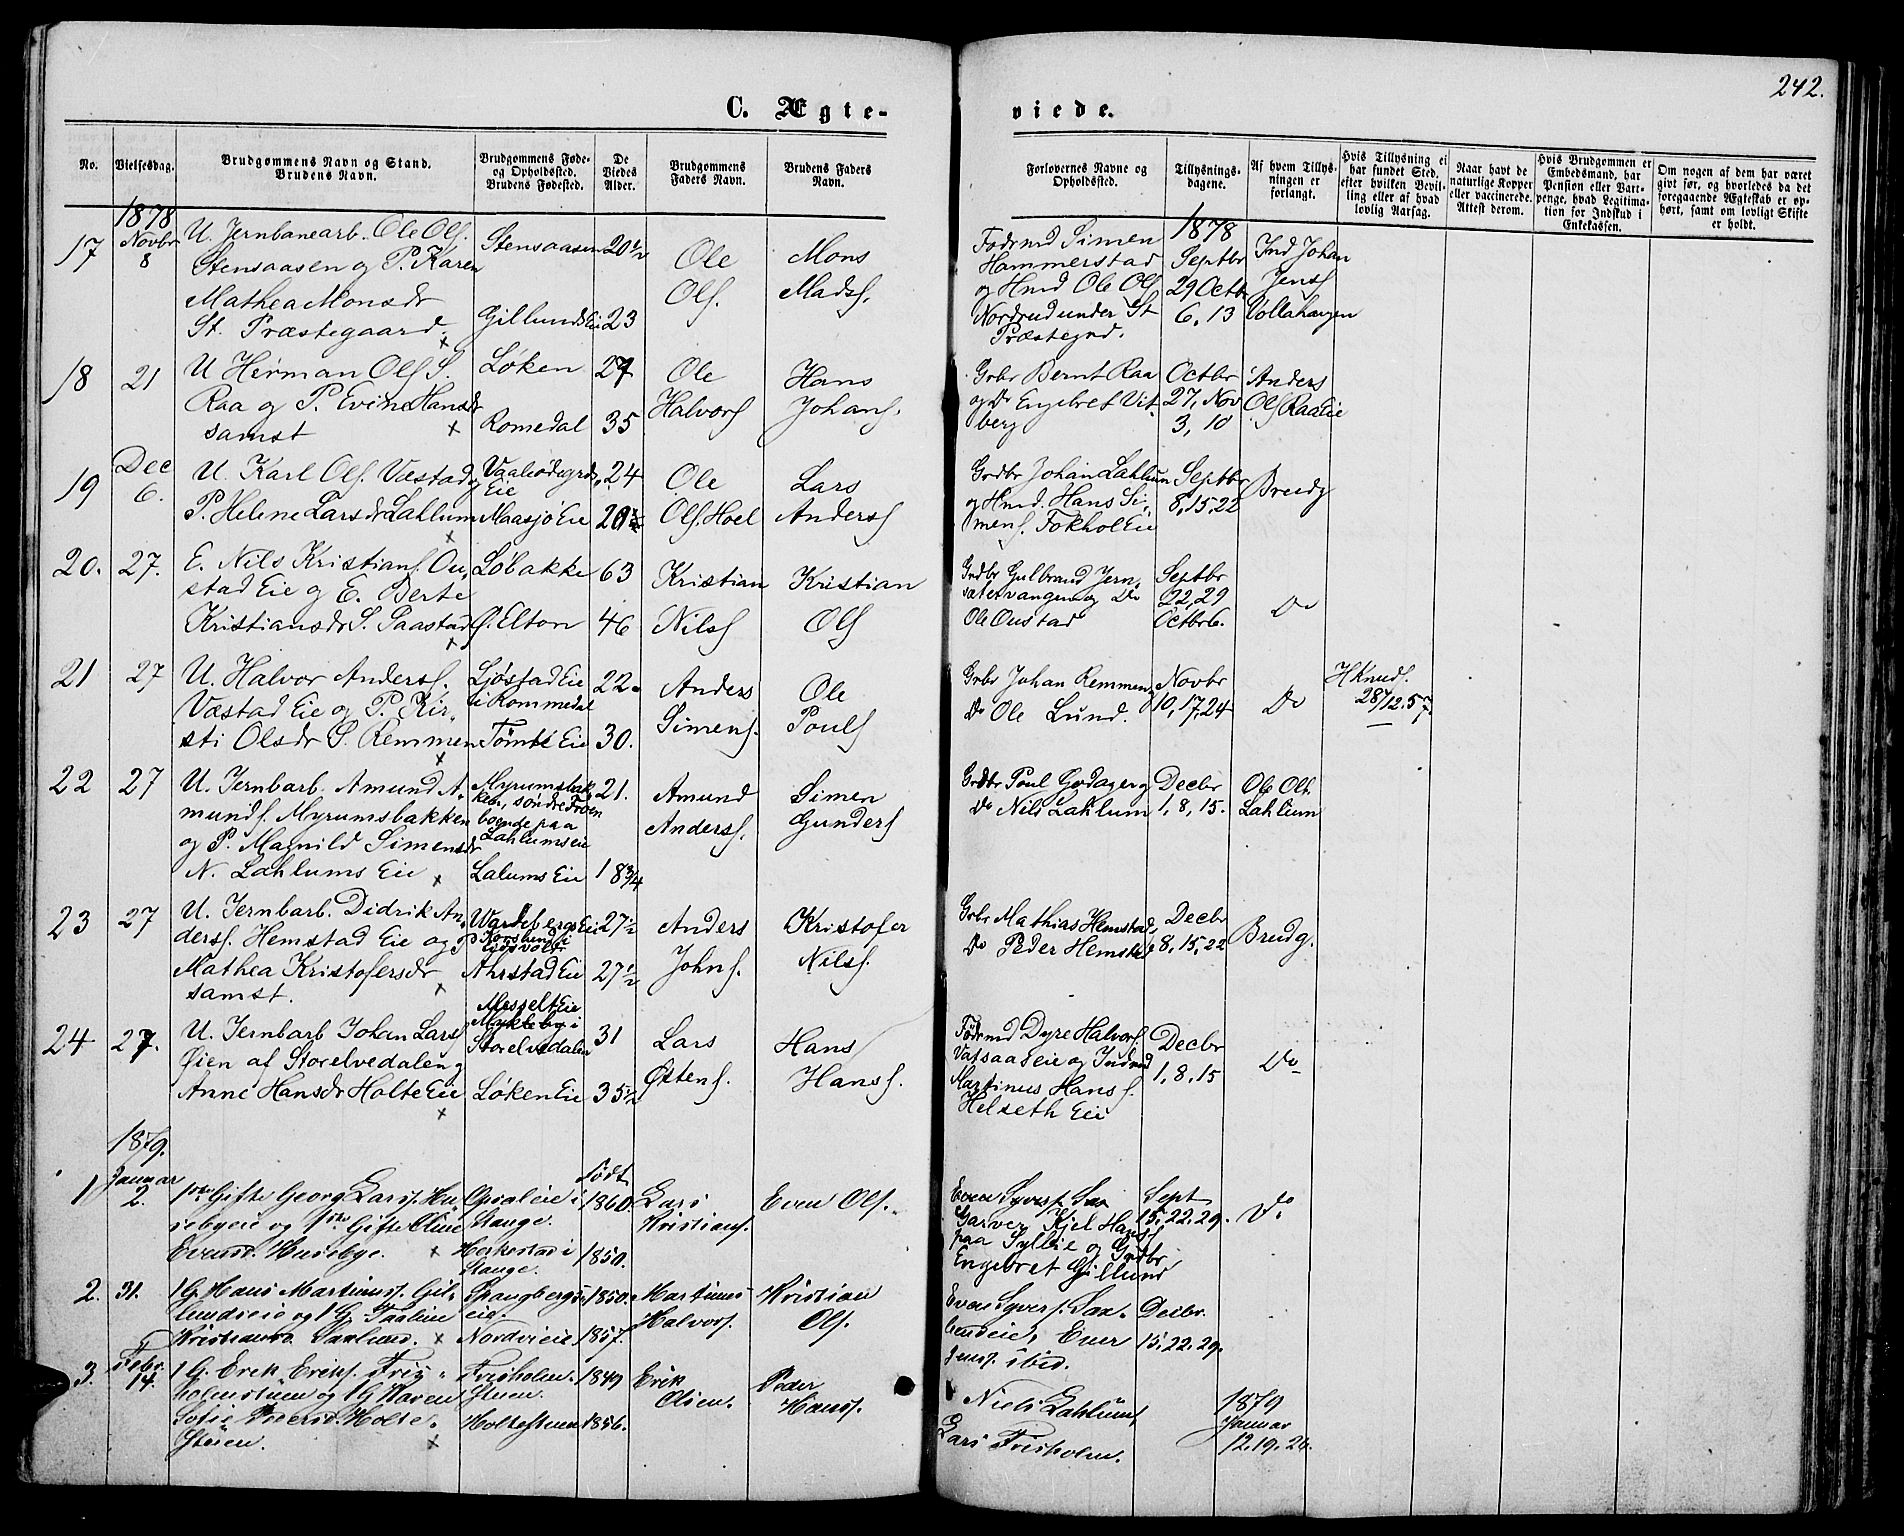 242.
C. Ægte-
viede.
No.
Vielsesdag.
Brudgommens Navn og Stand.
Brudens Navn.
Brudgommens Føde-
og Opholdssted.
Brudens Fødested.
De
Viedes
Alder.
Brudgommens
Faders Navn.
Brudens Faders
Navn.
Forlovernes Navne og
Opholdssted.
Tillysnings-
dagene.
Af hvem Tillys-
ningen er
forlangt.
Hvis Tillysning ei
har fundet Sted,
efter hvilken Bevil-
ling eller af hvad
lovlig Aarsag.
Naar havt de
naturlige Kopper
eller vaccinerede.
Attest derom.
Hvis Brudgommen er
Embedsmand, har
Pension eller Vart-
penge, hvad Legitima-
tion for Indskud i
Enkekassen.
Om nogen af dem har været
givt før, og hvorledes da det
foregaaende Ægteskab er op-
hørt, samt om lovligt Skifte
er holdt.
1878
17
Novbr
8
U. Jernbanearb. Ole Ols.
Stensaasen og P. Karen
Mathea Monsdr
St. Præstegaard.
Stensaasen
Gillunds Eie
20 1/2
23
Ole
Ols.
Mons
Mads.
Fodrmd Simen
Hammerstad
og Hmd Ole Ols
Nordrud under St
Præstegrd.
1878
Septbr
29 Octb
6, 13
Ind Johan
Jens
Vollahaugen
18
21
U Herman Ols S.
Raa og P. Evine Hansdr
samst
Løken
Romedal
27
35
Ole
Halvors
Hans
Johans.
Grbr Bernt Raa
og Do Engebret Vit-
berg
Octbr
27, Nov
3, 10
Anders
Ols Raaeie
19
Dec
6.
U. Karl Ols. Væstad og
P. Helene Larsdr Lahlum
Eie
Maasjø Eie
24
20 1/2
Ole
Ols. Hoel
Lars
Anders
Grdbr Johan Lahlum
og Hmd. Hans Si-
mens. Fokhol Eie
Septbr
8, 15, 22
Brudg
20.
27.
E. Nils Kristians. Ou-
stad Eie og E. Berte
Kristiansdr S. Paastad
Løbakke
Ø. Elton
63
46
Kristian
Nils
Kristian
Ols
Grdbr Gulbrand Jern-
sætervangen og Do
Ole Oustad
Septbr
22, 29
Octbr 6.
Do
21
27
U. Halvor Anders.
Væstad Eie og P. Kir-
sti Olsdr S. Remmen
Ljøstad Eie
i Rommedal
Tømte Eie
22
30.
Anders
Simens.
Ole
Pouls
Grbr Johan Remmen og
Do Ole Lund.
Novbr
10, 17, 24
Do
H Knuds.
28/12 57.
22
27
U. Jernbarb. Amund A-
munds. Myrumsbakken
og P. Magnild Simensdr
N. Lahlums Eie
Myrumsbak
ken, søndre Froen
boende paa
Lahlumseie
Lalums Eie
21.
18 3/4
Amund
Anders.
Simen
Gunders
Grdbr Poul Godager og
Do Nils Lahlum
Decbr
1, 8, 15.
Ole Ols.
Lahlum
23
27
U. Jernbarb. Didrik An-
ders. Hemstad Eie og P
Mathea Kristofersdr
samst.
Wardebergs Eie
Ahstad Eie
27 1/2
27 1/2
Anders
Johns.
Kristofer
Nils.
Grbr Mathias Hemstad,
Do Peder Hemstad
Decbr
8, 15, 22
Brudg.
24
27.
U. Jernbarb Johan Lars
Øien af Storelvedalen og
Anne Hansdr Holte Eie
Messelt Eie
Myklebo i
Storelvedalen
Løken Eie
31
35 1/2
Lars
Østens.
Hans
Hans.
Fødrmd Dyre Halvors
Vatsaas eie og Indmd
Martinus Hans.
Helseth Eie
Decbr
1, 8, 15
Do
1879.
1
Januar
2.
1ste Gifte Georg Larss. Hu-
sebyeie og 1ste Gifte Oline
Evensd. Husebye.
Opsaleie i
Stange.
Horkestad i
Stange.
Født
1860.
1850.
Lars
Kristians.
Even Ols.
Even Syvers. Saa
Garver Kjel Hans
paa Syllie og Grdbr
Engebret Gillund
Sept
15. 22. 29.
Do
2.
31.
1 G. Hans Martinuss. Gil-
lundseie og 1 G. Paaline
Kristiansd. Saalund.
Spangbergs-
eie.
Nordvieie.
1850.
1857.
Martinus
Halvors.
Kristian
Ols.
Even Syvers. Saa-
lundeie, Even
Jens. ibid.
Decbr.
15. 22. 29.
3.
Febr.
14.
1 G. Erek Eriks. Fris-
holmstuen og 1 G. Maren
Sofie Pedersd. Holte-
Stuen.
Frisholm-
Stuen.
Holtestuen
1849
1856.
Erik
Olsen.
Peder
Hans.
Niels Lahlum,
Lars Frisholm.
1879
Januar
12. 19. 26.